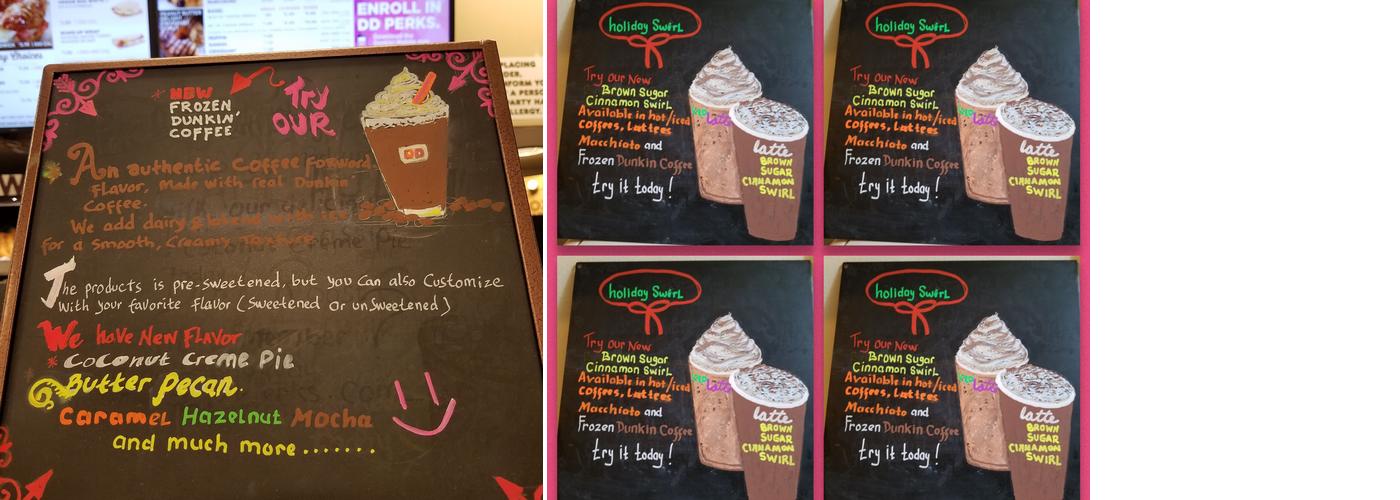 ENROLL IN
DD PERKS.
NEW
FROZEN
DUNKIN'
COFFEE
Try
OUR
DD
An authentic Coffee Forward
flavor, Made with real Dunkin
Coffee.
We add dairy & blend with ice
for a Smooth, Creamy texture
The products is pre-sweetened, but you can also Customize
with your favorite flavor (Sweetened or unSweetened)
We have New Flavor
* Coconut Creme Pie
Butter Pecan.
Caramel Hazelnut Mocha
and much more.......
holiday Swirl
Try Our New
Brown Sugar
Cinnamon Swirl
Available in hot/iced
Coffees, Lattees
Macchiato and
Frozen Dunkin Coffee
try it today!
latte
BROWN
SUGAR
CINNAMON
SWIRL
holiday Swirl
Try Our New
Brown Sugar
Cinnamon Swirl
Available in hot/iced
Coffees, Lattees
Macchiato and
Frozen Dunkin Coffee
try it today!
latte
BROWN
SUGAR
CINNAMON
SWIRL
holiday Swirl
Try Our New
Brown Sugar
Cinnamon Swirl
Available in hot/iced
Coffees, Lattees
Macchiato and
Frozen Dunkin Coffee
try it today!
latte
BROWN
SUGAR
CINNAMON
SWIRL
holiday Swirl
Try Our New
Brown Sugar
Cinnamon Swirl
Available in hot/iced
Coffees, Lattees
Macchiato and
Frozen Dunkin Coffee
try it today!
latte
BROWN
SUGAR
CINNAMON
SWIRL